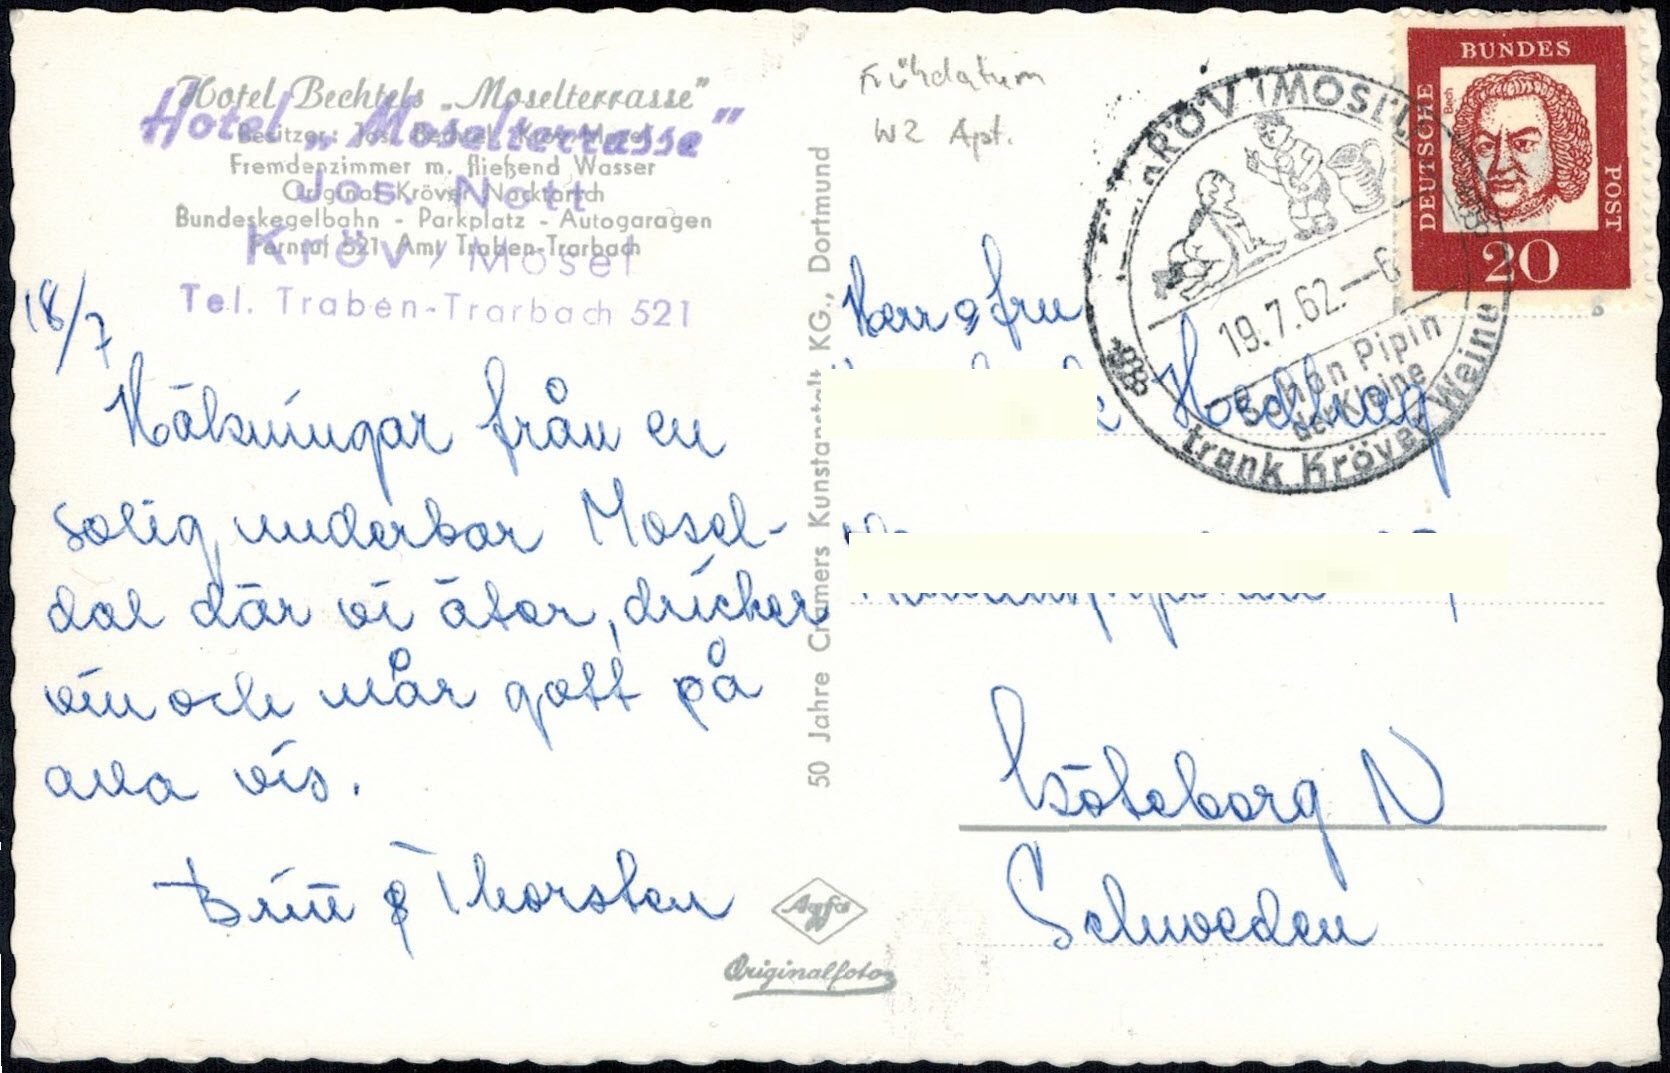 Hotel Bechtels „Moselterrasse"
Besitzer: Jos. Bechtel, Kröv-Mosel
Fremdenzimmer m. fließend Wasser
Original Kröver Nacktarsch
Bundeskegelbahn - Parkplatz - Autogaragen
Fernruf 521 Amt Traben-Trarbach
Hotel „Moselterrasse"
Jos. Nott
Kröv/Mosel
Tel. Traben-Trarbach 521
18/7
Hälsningar från en
solig underbar Mosel-
dal där vi äter, dricker
vin och mår gott på
alla vis.
Britt & Thorsten
50 Jahre Cramers Kunstanstalt KG., Dortmund
Agfa
Originalfoto
Frühdatum
W2 Apt.
KRÖV (MOSEL)
19.7.62.--6
Schon Pipin
der Kleine
trank Kröver Weine
DEUTSCHE
BUNDES
POST
Bach
20
Herr o fru
Göteborg N
Schweden